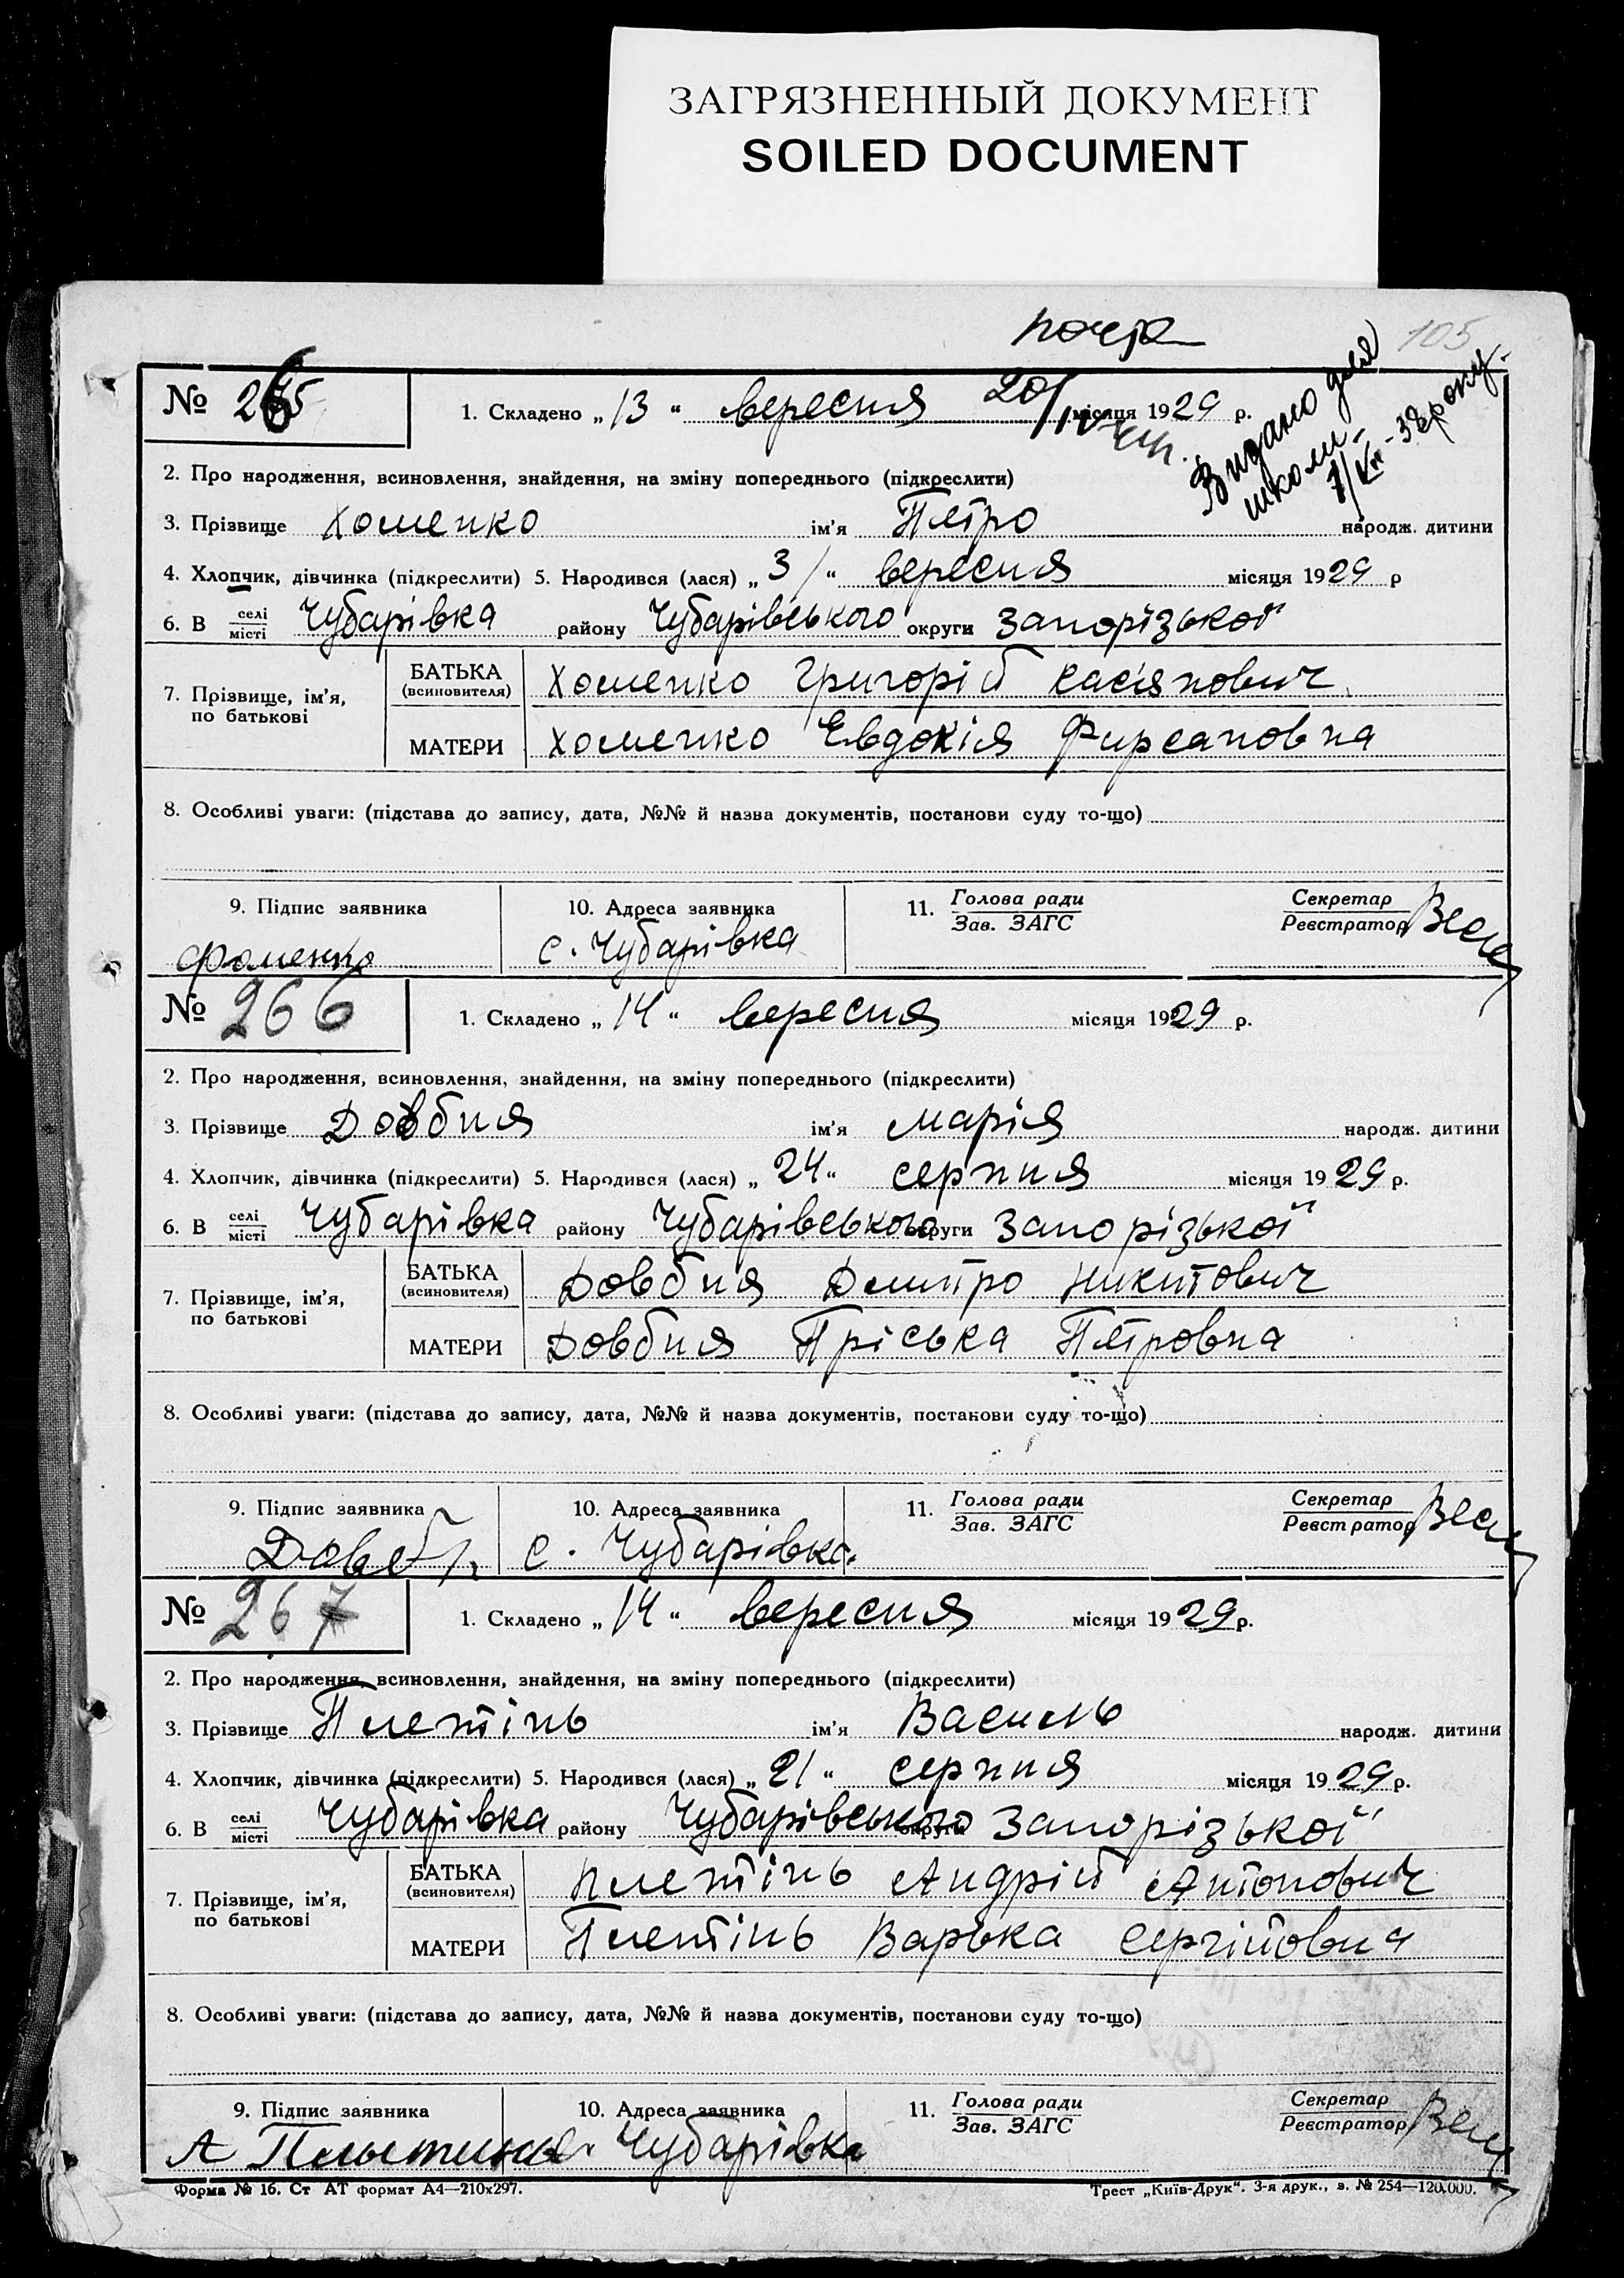 ЗАГРЯЗНЕННЫЙ ДОКУМЕНТ
SOILED DOCUMENT
почта
105
Видано для
школи
№ 265
1. Складено „ 13 “ вересня 20/IV місяця 1929 р.
2. Про народження, всиновлення, знайдення, на зміну попереднього (підкреслити)
3. Прізвище Хоменко ім’я Петро народж. дитини
4. Хлопчик, дівчинка (підкреслити) 5. Народився (лася) „ 3 “ вересня місяця 1929 р
6. В селі місті Чубарівка району Чубарівського округи Запорізької
7. Прізвище, ім’я, по батькові
БАТЬКА (всиновителя) Хоменко Григорій Касіянович
МАТЕРИ Хоменко Евдокія Фирсановна
8. Особливі уваги: (підстава до запису, дата, №№ й назва документів, постанови суду то-що)
9. Підпис заявника 10. Адреса заявника 11. Голова ради Зав. ЗАГС Секретар Реєстратор
Фоменко с. Чубарівка
№ 266
1. Складено „ 14 “ вересня місяця 1929 р.
2. Про народження, всиновлення, знайдення, на зміну попереднього (підкреслити)
3. Прізвище Довбня ім’я Марія народж. дитини
4. Хлопчик, дівчинка (підкреслити) 5. Народився (лася) „ 24 “ серпня місяця 1929 р.
6. В селі місті Чубарівка району Чубарівського округи Запорізької
7. Прізвище, ім’я, по батькові
БАТЬКА (всиновителя) Довбня Дмитро Никитович
МАТЕРИ Довбня Пріська Петровна
8. Особливі уваги: (підстава до запису, дата, №№ й назва документів, постанови суду то-що)
9. Підпис заявника 10. Адреса заявника 11. Голова ради Зав. ЗАГС Секретар Реєстратор
с. Чубарівка
№ 267
1. Складено „ 14 “ вересня місяця 1929 р.
2. Про народження, всиновлення, знайдення, на зміну попереднього (підкреслити)
3. Прізвище Плетінь ім’я Василь народж. дитини
4. Хлопчик, дівчинка (підкреслити) 5. Народився (лася) „ 21 “ серпня місяця 1929 р.
6. В селі місті Чубарівка району Чубарівського округи Запорізької
7. Прізвище, ім’я, по батькові
БАТЬКА (всиновителя) Плетінь Андрій Антонович
МАТЕРИ Плетінь Варька Сергійовна
8. Особливі уваги: (підстава до запису, дата, №№ й назва документів, постанови суду то-що)
9. Підпис заявника 10. Адреса заявника 11. Голова ради Зав. ЗАГС Секретар Реєстратор
А Чубарівка
Форма № 16. Ст АТ формат А4—210x297. Трест „Київ-Друк“. 3-я друк., з. № 254—120.000.